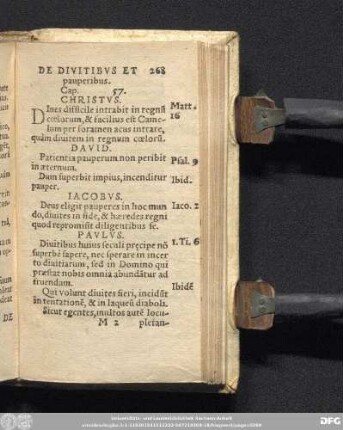 DE DIVITIBVS ET 268
pauperibus.
Cap. 57.
CHRISTVS.
Diues difficile intrabit in regnũ Matt.
cœlorum, & facilius est Came- 16
lum per foramen acus intrare,
quàm diuitem in regnum cœlorũ.
DAVID.
Patientia pauperum non peribit Psal. 9
in æternum.
Dum superbit impius, incenditur Ibid.
pauper.
IACOBVS.
Deus eligit pauperes in hoc mun Iaco. 2
do, diuites in fide, & hæredes regni
quod repromisit diligentibus se.
PAVLVS.
Diuitibus huius seculi præcipe nõ 1. Ti. 6
superbè sapere, nec sperare in incer
to diuitiarum, sed in Domino qui
præstat nobis omnia abundãtur ad
fruendam.
Qui volunt diuites fieri, incidũt Ibidẽ
in tentationẽ, & in laqueũ diaboli.
Sicut egentes, multos autẽ locu-
M 2 pletan-
DE
DFG